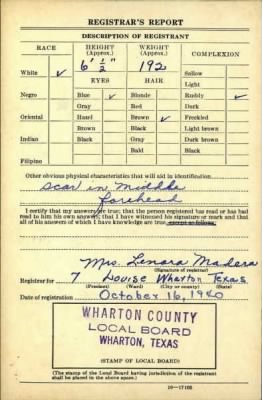 REGISTRAR'S REPORT
DESCRIPTION OF REGISTRANT
RACE HEIGHT (Approx.) WEIGHT (Approx.) COMPLEXION
6' ½" 192
White ✓ Sallow
EYES HAIR Light
Negro Blue ✓ Blonde Ruddy ✓
Gray Red Dark
Oriental Hazel Brown ✓ Freckled
Brown Black Light brown
Indian Black Gray Dark brown
Bald Black
Filipino
Other obvious physical characteristics that will aid in identification
scar in middle
forehead
I certify that my answers are true; that the person registered has read or has had
read to him his own answers; that I have witnessed his signature or mark and that
all of his answers of which I have knowledge are true, except as follows:
Mrs. Lenora Madera
(Signature of registrar)
Registrar for 7 Louise Wharton Texas
(Precinct) (Ward) (City or county) (State)
Date of registration October 16, 1940
WHARTON COUNTY
LOCAL BOARD
WHARTON, TEXAS
(STAMP OF LOCAL BOARD)
(The stamp of the Local Board having jurisdiction of the registrant
shall be placed in the above space.)
16-17105